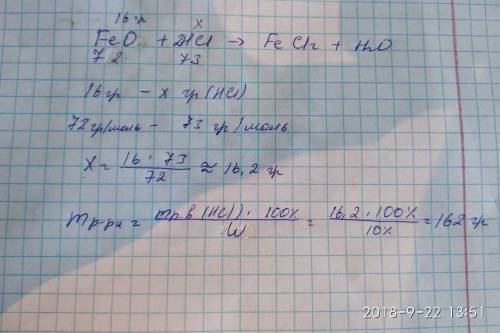 16 гр x
FeO + 2HCl → FeCl₂ + H₂O
72 73
16 гр - x гр (HCl)
72 гр/моль - 73 гр/моль
x = 16 · 73 / 72 ≈ 16,2 гр
m р-ра = m р.в (HCl) · 100% / W = 16,2 · 100% / 10% = 162 гр
2018-9-22 13:51